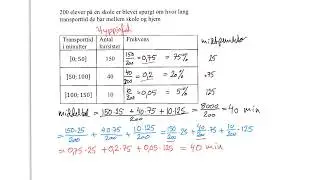 200 elever på en skole er blevet spurgt om hvor lang
transporttid de har mellem skole og hjem
hyppighed
Transporttid i minutter Antal kursister Frekvens midtpunkter
]0; 50] 150 150/200 = 0,75 = 75% 25
]50; 100] 40 40/200 = 0,2 = 20% 75
]100; 150] 10 10/200 = 0,05 = 5% 125
middeltal = (150·25 + 40·75 + 10·125)/200 = 8000/200 = 40 min
= 150·25/200 + 40·75/200 + 10·125/200 = 150/200·25 + 40/200·75 + 10/200·125
= 0,75·25 + 0,2·75 + 0,05·125 = 40 min